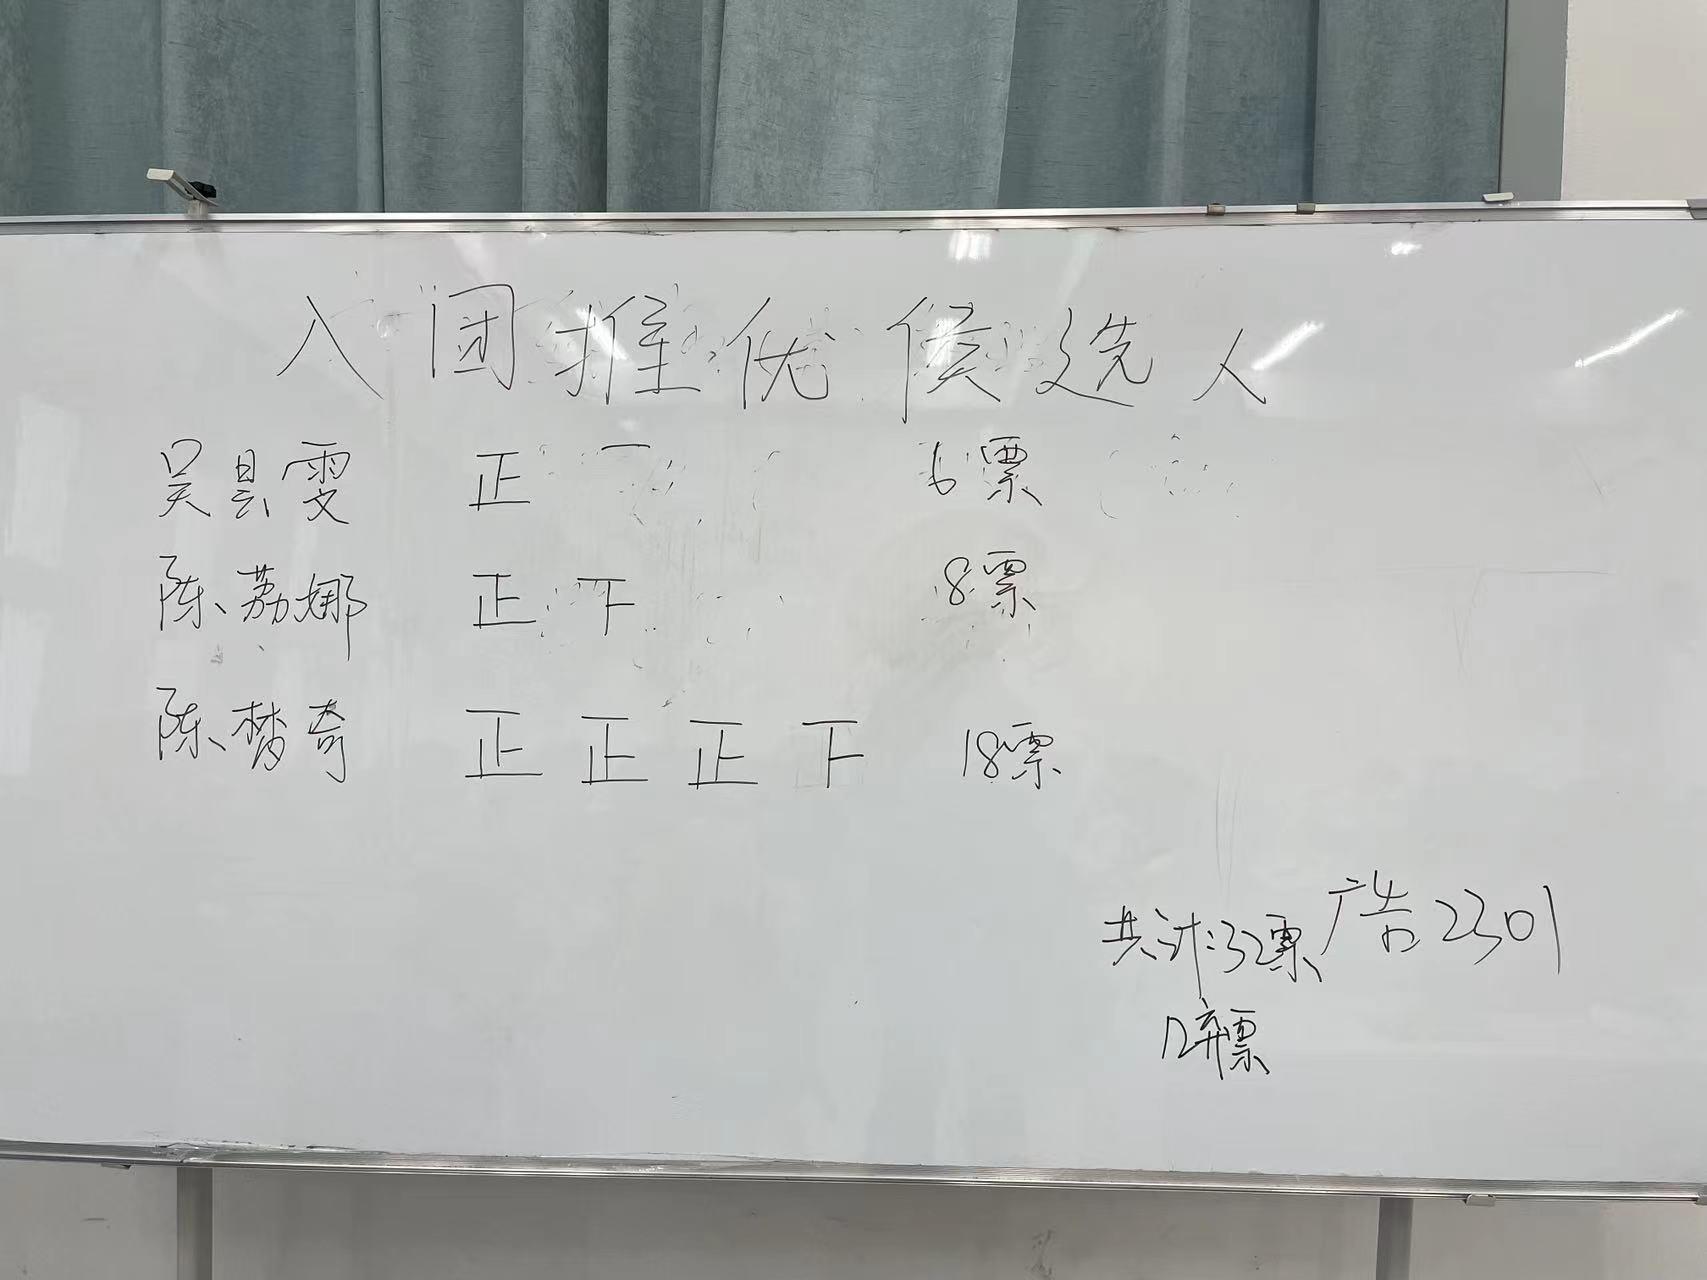 入团推优候选人
吴昙雯 正 一 6票
陈荔娜 正 下 8票
陈梦奇 正 正 正 下 18票
共计:32票 广告2301
12弃票